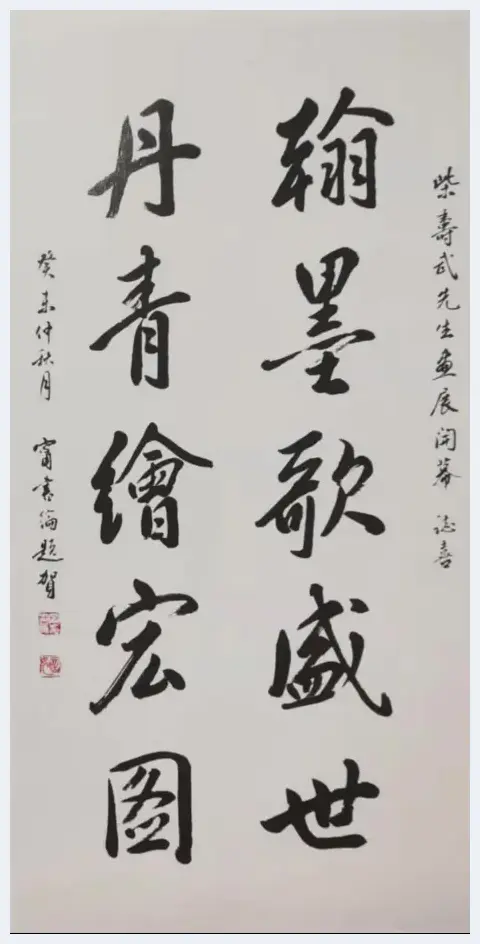 柴壽武先生畫展開幕 誌喜
翰墨歌盛世
丹青繪宏图
癸未仲秋月 甯書倫題賀